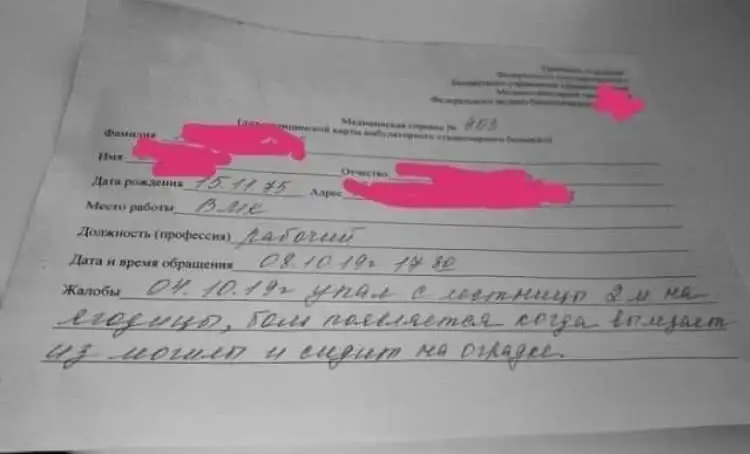 Федерального государственного
Бюджетного учреждения здравоохранения
Федерального медико-биологического
Медицинская справка № 803
(для медицинской карты амбулаторного стационарного больного)
Фамилия
Имя Отчество
Дата рождения 15.11.75 Адрес
Место работы
Должность (профессия) рабочий
Дата и время обращения 08.10.19г 17 30
Жалобы 04.10.19г упал с лестницы 2 м на
ягодицы, боли появляется когда вылазает
из могилы и сидит на оградке.